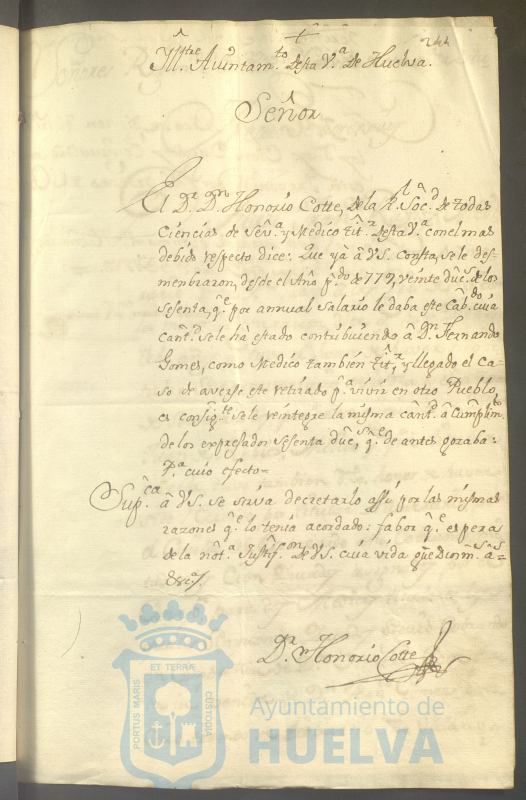 +
244
Yll.tre Aiuntam.to desta V.a de Huelva.
Señor
El D.r D.n Honorio Cotte, de la R.l Soc.d de todas
Ciencias de Sev.a y Medico tit.r desta V.a con el mas
debido respecto dice: Que yà â V.S. Consta, se le des-
menbrazon, desde el Año p.do de 779, veinte duc.s de los
sesenta, q.e por annual Salario le daba este Cab.do cuia
cant.d se le há estado contribuiendo â D.n Fernando
Gomes, como Medico tambien tit.r, y llegado el ca-
so de averse este retirado p.a vivir en otro Pueblo,
es consig.te se le reintegre la misma cant.d â Cumplim.to
de los expresados sesenta duc.s, q.e de antes gozaba:
P.a cuio efecto=
Sup.ca â V.S. se sirva decretarlo assi por las mismas
razones q.e lo tenia acordado: fabor q.e espera
de la not.a Justif.on de V.S. cuia vida gu.e D. m.s a.s
&c.a
D.r Honorio Cotte
ET TERRÆ
PORTUS MARIS
CUSTODIA
Ayuntamiento de
HUELVA